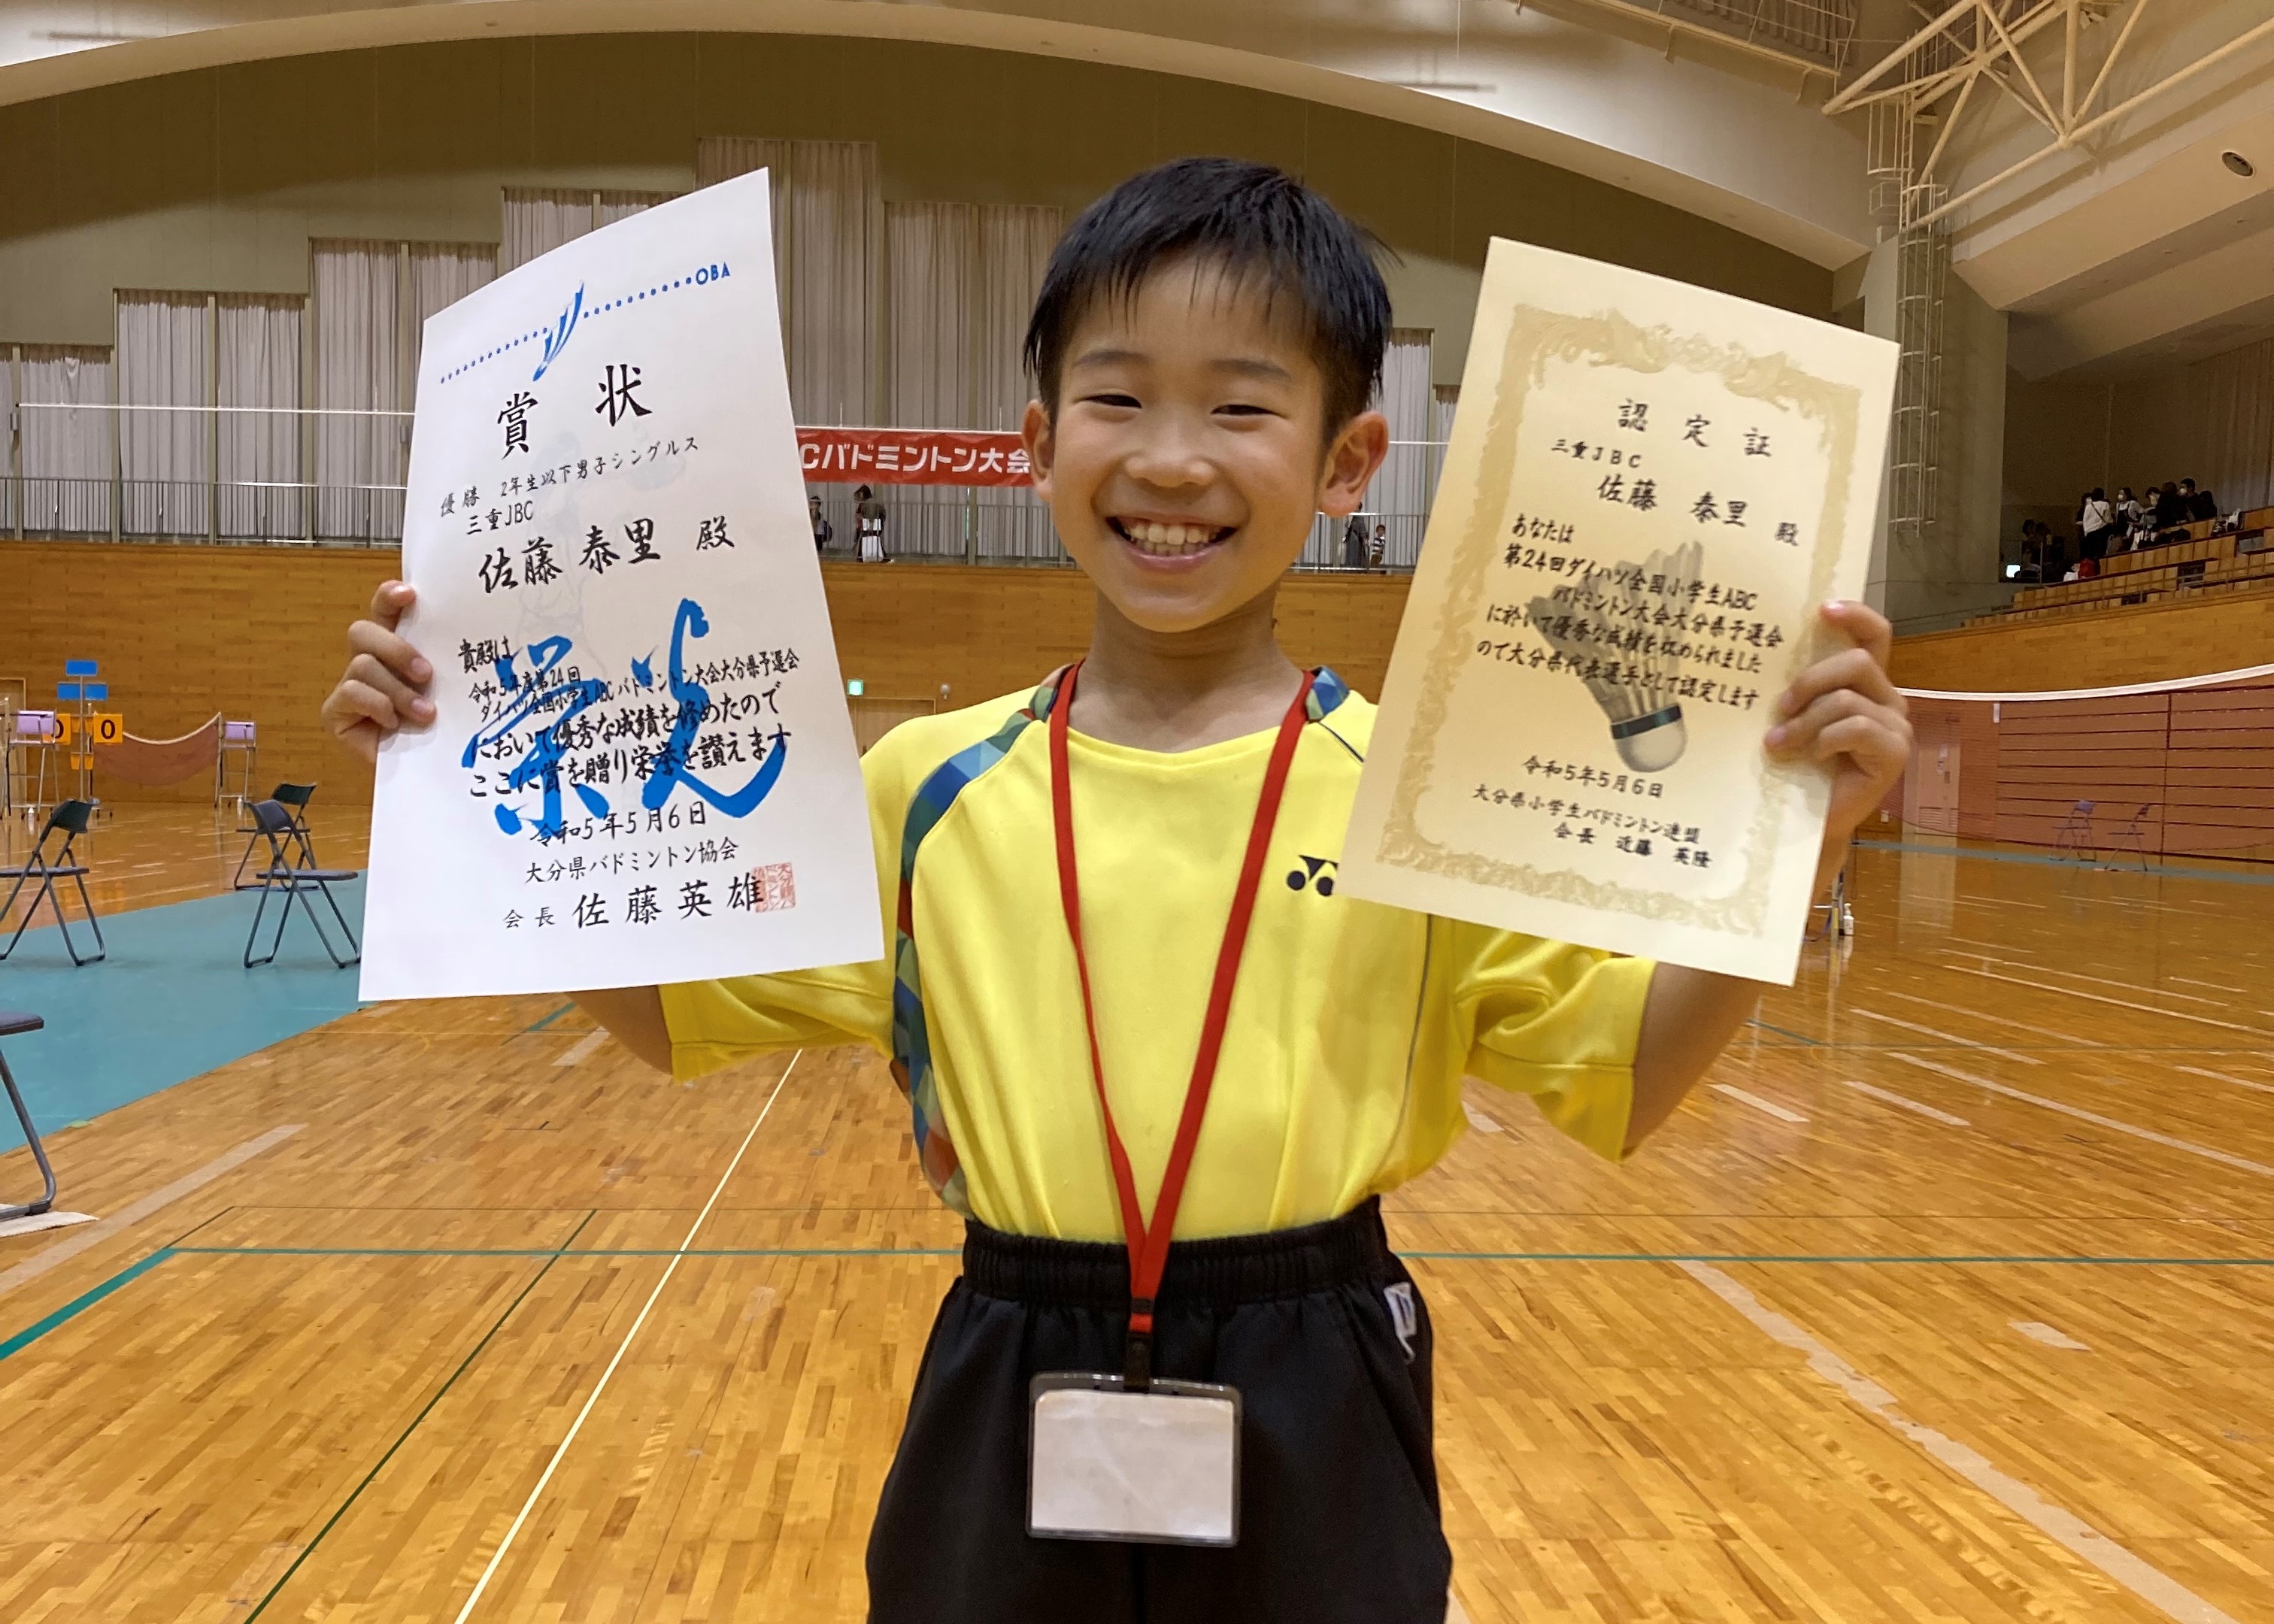 OBA
賞 状
優 勝 2年生以下男子シングルス
三重JBC
佐藤 泰里 殿
貴殿は
令和5年度第24回
ダイハツ全国小学生ABCバドミントン大会大分県予選会
において優秀な成績を修めたので
ここに賞を贈り栄誉を讃えます
令和5年5月6日
大分県バドミントン協会
会長 佐藤英雄
Cバドミントン大会
認 定 証
三重JBC
佐藤 泰里 殿
あなたは
第24回ダイハツ全国小学生ABC
バドミントン大会大分県予選会
に於いて優秀な成績を収められました
ので大分県代表選手として認定します
令和5年5月6日
大分県小学生バドミントン連盟
会長 近藤 英隆
0
0